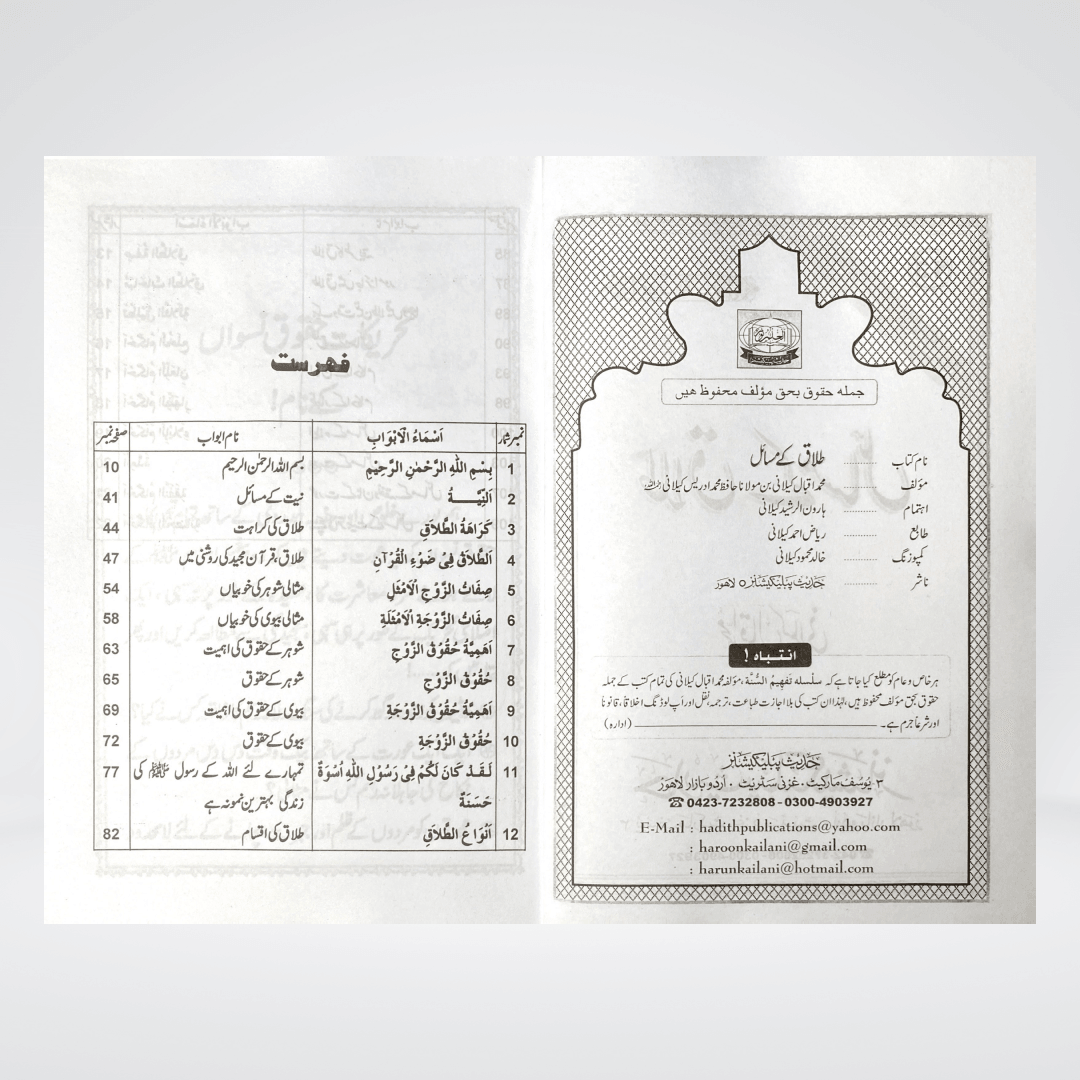 جملہ حقوق بحق مؤلف محفوظ ھیں
نام کتاب ............ طلاق کے مسائل
مؤلف ............ محمد اقبال کیلانی بن مولانا حافظ محمد ادریس کیلانی رحمہ اللہ
اہتمام ............ ہارون الرشید کیلانی
طابع ............ ریاض احمد کیلانی
کمپوزنگ ............ خالد محمود کیلانی
ناشر ............ حدیث پبلیکیشنز ٥ لاہور
انتباہ !
ہر خاص و عام کو مطلع کیا جاتا ہے کہ سلسلہ تَفْهِیْمُ السُّنَّة، مؤلفہ محمد اقبال کیلانی کی تمام کتب کے جملہ
حقوق بحق مؤلف محفوظ ہیں، لہٰذا ان کتب کی بلا اجازت طباعت، ترجمہ، نقل اور اَپ لوڈنگ اخلاقاً، قانوناً
اور شرعاً جرم ہے۔ (ادارہ)
حدیث پبلیکیشنز
٢ یوسف مارکیٹ ، غزنی سٹریٹ ، اُردو بازار لاہور
☎ 0423-7232808 - 0300-4903927
E-Mail : hadithpublications@yahoo.com
: haroonkailani@gmail.com
: harunkailani@hotmail.com
فہرست
نمبر شمار اَسْمَاءُ الْاَبْوَابِ نام ابواب صفحہ نمبر
1 بِسْمِ اللّٰهِ الرَّحْمٰنِ الرَّحِیْمِ بسم اللہ الرحمٰن الرحیم 10
2 اَلنِّیَّـــةُ نیت کے مسائل 41
3 کَرَاهَةُ الطَّلاَقِ طلاق کی کراہت 44
4 اَلطَّلاَقُ فِیْ ضَوْءِ الْقُرْآنِ طلاق، قرآن مجید کی روشنی میں 47
5 صِفَاتُ الزَّوْجِ الْاَمْثَلِ مثالی شوہر کی خوبیاں 54
6 صِفَاتُ الزَّوْجَةِ الْاَمْثَلَةِ مثالی بیوی کی خوبیاں 58
7 اَهَمِیَّةُ حُقُوْقِ الزَّوْجِ شوہر کے حقوق کی اہمیت 63
8 حُقُوْقُ الزَّوْجِ شوہر کے حقوق 65
9 اَهَمِیَّةُ حُقُوْقِ الزَّوْجَةِ بیوی کے حقوق کی اہمیت 69
10 حُقُوْقُ الزَّوْجَةِ بیوی کے حقوق 72
11 لَقَدْ کَانَ لَکُمْ فِیْ رَسُوْلِ اللّٰهِ اُسْوَةٌ تمہارے لئے اللہ کے رسول ﷺ کی 77
حَسَنَةٌ زندگی بہترین نمونہ ہے
12 اَنْوَاعُ الطَّلاَقِ طلاق کی اقسام 82